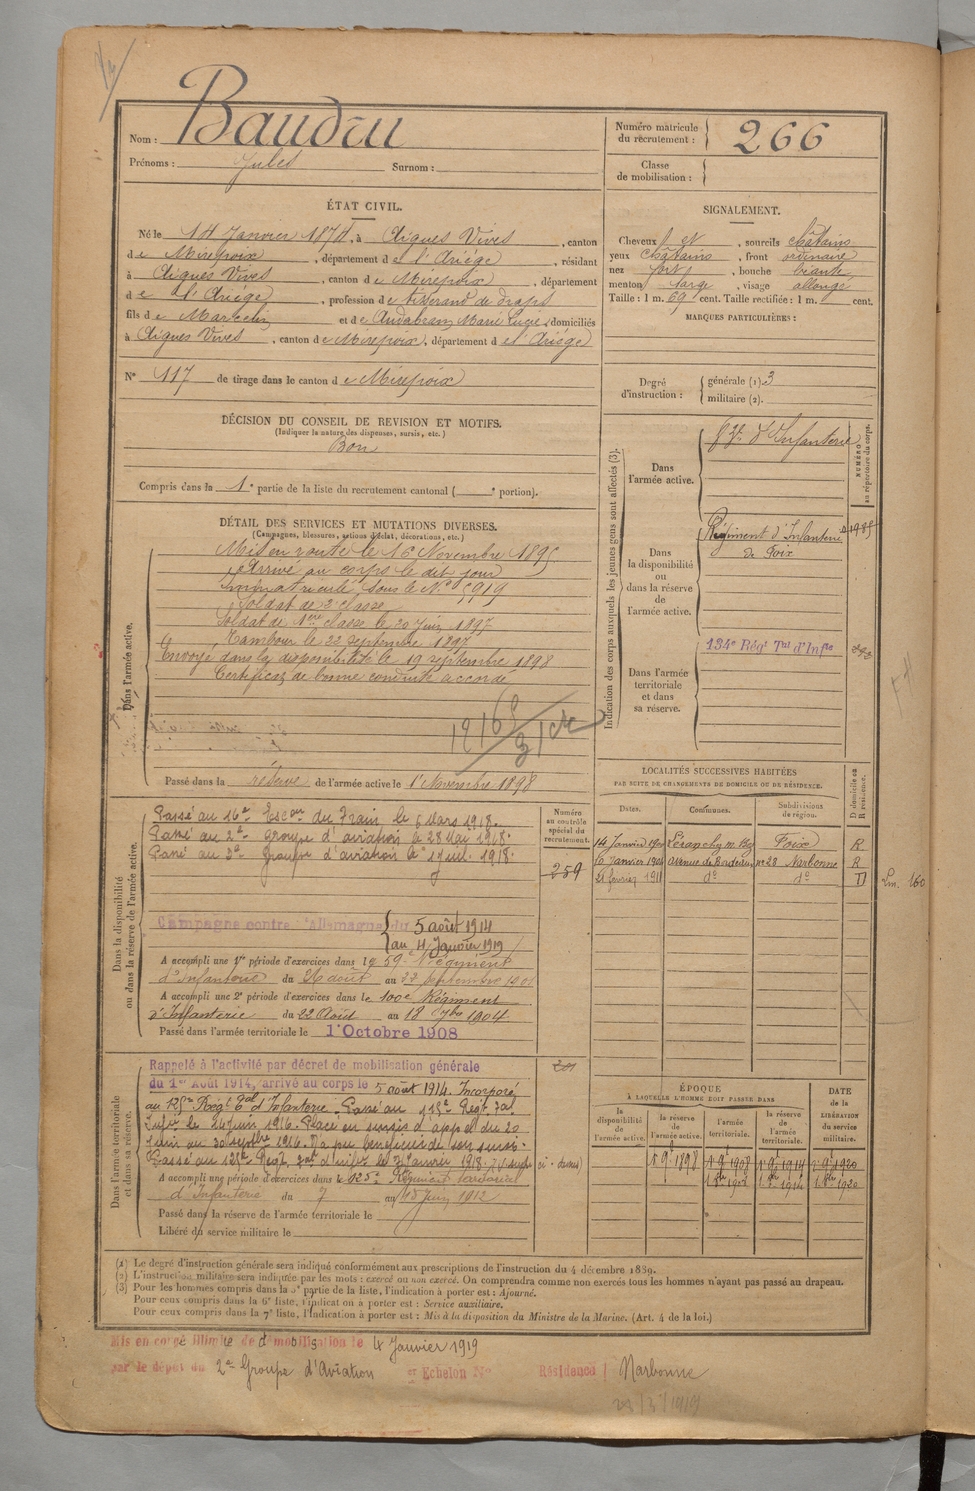 Nom : Baudru
Prénoms : Jules Surnom :
Numéro matricule du recrutement : 266
Classe de mobilisation :
ÉTAT CIVIL.
Né le 14 Janvier 1874, à Aigues Vives, canton
de Mirepoix, département de l'Ariége, résidant
à Aigues Vives, canton de Mirepoix, département
de l'Ariége, profession de tisserand de draps
fils de Marcelin et de Audabram Marie Lucie, domiciliés
à Aigues Vives, canton de Mirepoix, département de l'Ariége
N° 117 de tirage dans le canton de Mirepoix
SIGNALEMENT.
Cheveux et , sourcils châtains
yeux châtains, front ordinaire
nez fort, bouche béante
menton large, visage allongé
Taille : 1 m. 69 cent. Taille rectifiée : 1 m. cent.
MARQUES PARTICULIÈRES :
Degré d'instruction : générale (1). 3
militaire (2).
DÉCISION DU CONSEIL DE REVISION ET MOTIFS.
(Indiquer la nature des dispenses, sursis, etc.)
Bon
Compris dans la 1e partie de la liste du recrutement cantonal ( e portion).
DÉTAIL DES SERVICES ET MUTATIONS DIVERSES.
(Campagnes, blessures, actions d'éclat, décorations, etc.)
Dans l'armée active.
Mis en route le 16 Novembre 1895
Arrivé au corps le dit jour
Immatriculé sous le N° 5919
Soldat de 2e classe
Soldat de 1ère classe le 20 Juin 1897
Tambour le 22 Septembre 1897
Envoyé dans la disponibilité le 19 septembre 1898
Certificat de bonne conduite accordé
Passé dans la réserve de l'armée active le 1er Novembre 1898
Indication des corps auxquels les jeunes gens sont affectés (3).
Dans l'armée active. d'Infanterie
NUMÉRO au répertoire du corps.
Dans la disponibilité ou dans la réserve de l'armée active. Régiment d'Infanterie
de Foix
Dans l'armée territoriale et dans sa réserve. 134e Régt Tal d'Infie
Dans la disponibilité ou dans la réserve de l'armée active.
Passé au 16e Escon du Train le 5 Mars 1918.
Passé au 2e groupe d'aviation le 28 Mai 1918.
Passé au 3e groupe d'aviation le 1 juil. 1918.
Numéro au contrôle spécial du recrutement.
259
Campagne contre l'Allemagne du 5 août 1914
au 4 Janvier 1919
A accompli une 1re période d'exercices dans le 59e Régiment
d'Infanterie du 26 août au 22 septembre 1901
A accompli une 2e période d'exercices dans le 100e Régiment
d'Infanterie du 22 Août au 18 7bre 1904.
Passé dans l'armée territoriale le 1er Octobre 1908
LOCALITÉS SUCCESSIVES HABITÉES
PAR SUITE DE CHANGEMENTS DE DOMICILE OU DE RÉSIDENCE.
Dates. Communes. Subdivisions de région. D domicile ou R résidence.
14 Janvier Foix R
Janvier Avenue de Bordeaux n° 28 Narbonne R
21 février 1911 do do D
Dans l'armée territoriale et dans sa réserve.
Rappelé à l'activité par décret de mobilisation générale
du 1er Août 1914, arrivé au corps le 5 août 1914. Incorporé
au Régt Tal d'Infanterie. Passé au 113e Régt. Tal
Infie le 24 juin 1916. Placé en sursis d'appel du 20
Juin au 30 1916. N'a pu bénéficier de son sursis.
Passé au 125e Régt. Tal d'infie le Janvier 1918.
A accompli une période d'exercices dans le 125e Régiment territorial
d'Infanterie du 7 au 15 Juin 1912
Passé dans la réserve de l'armée territoriale le
Libéré du service militaire le
ÉPOQUE
À LAQUELLE L'HOMME DOIT PASSER DANS
la disponibilité de l'armée active. la réserve de l'armée active. l'armée territoriale. la réserve de l'armée territoriale.
DATE de la LIBÉRATION du service militaire.
(1) Le degré d'instruction générale sera indiqué conformément aux prescriptions de l'instruction du 4 décembre 1889.
(2) L'instruction militaire sera indiquée par les mots : exercé ou non exercé. On comprendra comme non exercés tous les hommes n'ayant pas passé au drapeau.
(3) Pour les hommes compris dans la 5e partie de la liste, l'indication à porter est : Ajourné.
Pour ceux compris dans la 6e liste, l'indication à porter est : Service auxiliaire.
Pour ceux compris dans la 7e liste, l'indication à porter est : Mis à la disposition du Ministre de la Marine. (Art. 4 de la loi.)
Mis en congé illimité de démobilisation le 4 Janvier 1919
par le dépôt du 2e Groupe d'Aviation Echelon N° Résidence Narbonne